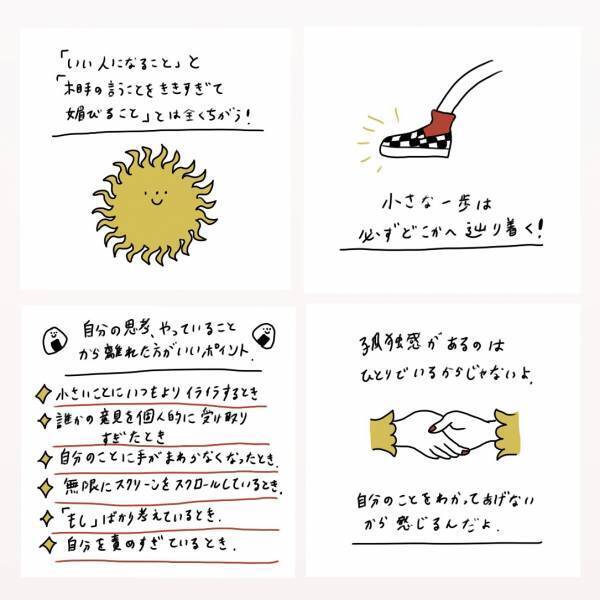 「いい人になること」と
「相手の言うことをききすぎて
媚びること」とは全くちがう!
小さな一歩は
必ずどこかへ辿り着く!
自分の思考、やっていること
から離れた方がいいポイント.
小さいことにいつもよりイライラするとき
誰かの意見を個人的に受け取り
すぎたとき
自分のことに手がまわらなくなったとき.
無限にスクリーンをスクロールしているとき.
「もし」ばかり考えているとき.
自分を責めすぎているとき.
孤独感があるのは
ひとりでいるからじゃないよ.
自分のことをわかってあげない
から感じるんだよ.